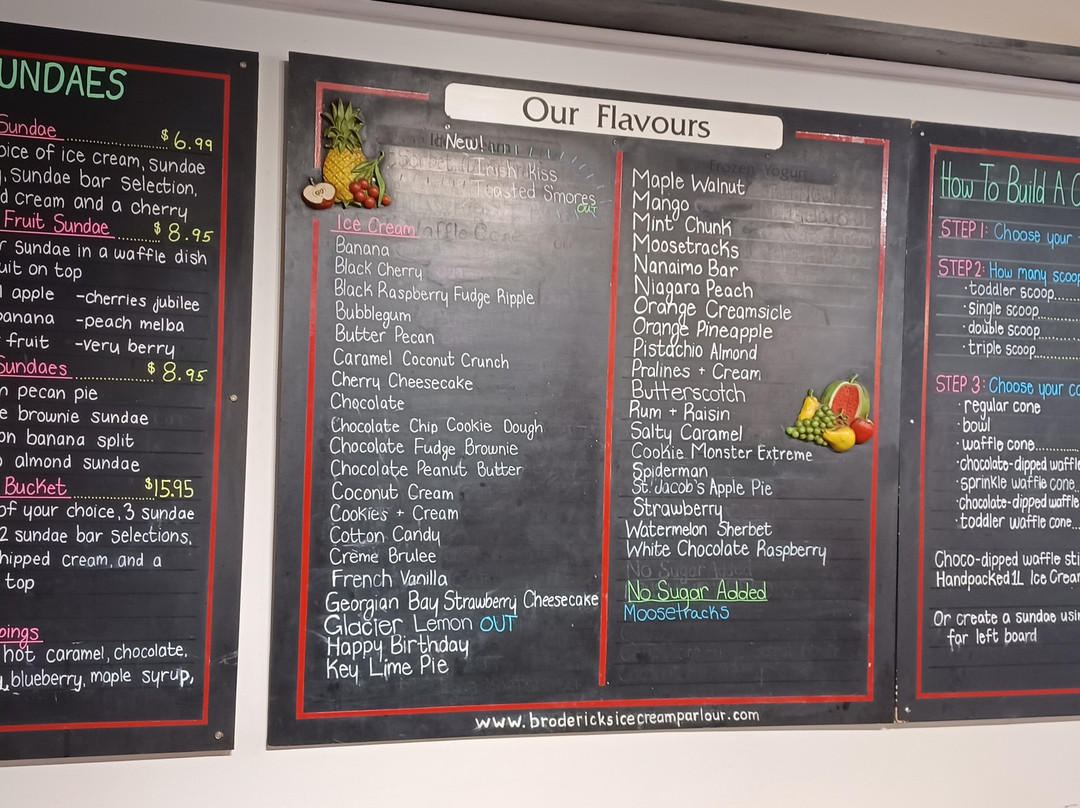 UNDAES
Sundae $6.99
oice of ice cream, sundae
, sundae bar selection,
d cream and a cherry
Fruit Sundae $8.95
r sundae in a waffle dish
uit on top
apple -cherries jubilee
anana -peach melba
fruit -very berry
Sundaes $8.95
n pecan pie
e brownie sundae
on banana split
almond sundae
Bucket $15.95
of your choice, 3 sundae
2 sundae bar selections,
hipped cream, and a
top
pings
hot caramel, chocolate,
blueberry, maple syrup,
Our Flavours
New!
Irish Kiss
Toasted Smores
OUT
Ice Cream
Banana
Black Cherry
Black Raspberry Fudge Ripple
Bubblegum
Butter Pecan
Caramel Coconut Crunch
Cherry Cheesecake
Chocolate
Chocolate Chip Cookie Dough
Chocolate Fudge Brownie
Chocolate Peanut Butter
Coconut Cream
Cookies + Cream
Cotton Candy
Crème Brulee
French Vanilla
Georgian Bay Strawberry Cheesecake
Glacier Lemon OUT
Happy Birthday
Key Lime Pie
Maple Walnut
Mango
Mint Chunk
Moosetracks
Nanaimo Bar
Niagara Peach
Orange Creamsicle
Orange Pineapple
Pistachio Almond
Pralines + Cream
Butterscotch
Rum + Raisin
Salty Caramel
Cookie Monster Extreme
Spiderman
St. Jacob's Apple Pie
Strawberry
Watermelon Sherbet
White Chocolate Raspberry
No Sugar Added
Moosetracks
www.brodericksicecreamparlour.com
How To Build A C
STEP 1: Choose your
STEP 2: How many scoop
·toddler scoop
·single scoop
·double scoop
·triple scoop
STEP 3: Choose your co
·regular cone
·bowl
·waffle cone
·chocolate-dipped waffle
·sprinkle waffle cone
·chocolate-dipped waffle
·toddler waffle cone
Choco-dipped waffle sti
Handpacked 1L Ice Crear
Or create a sundae usin
far left board